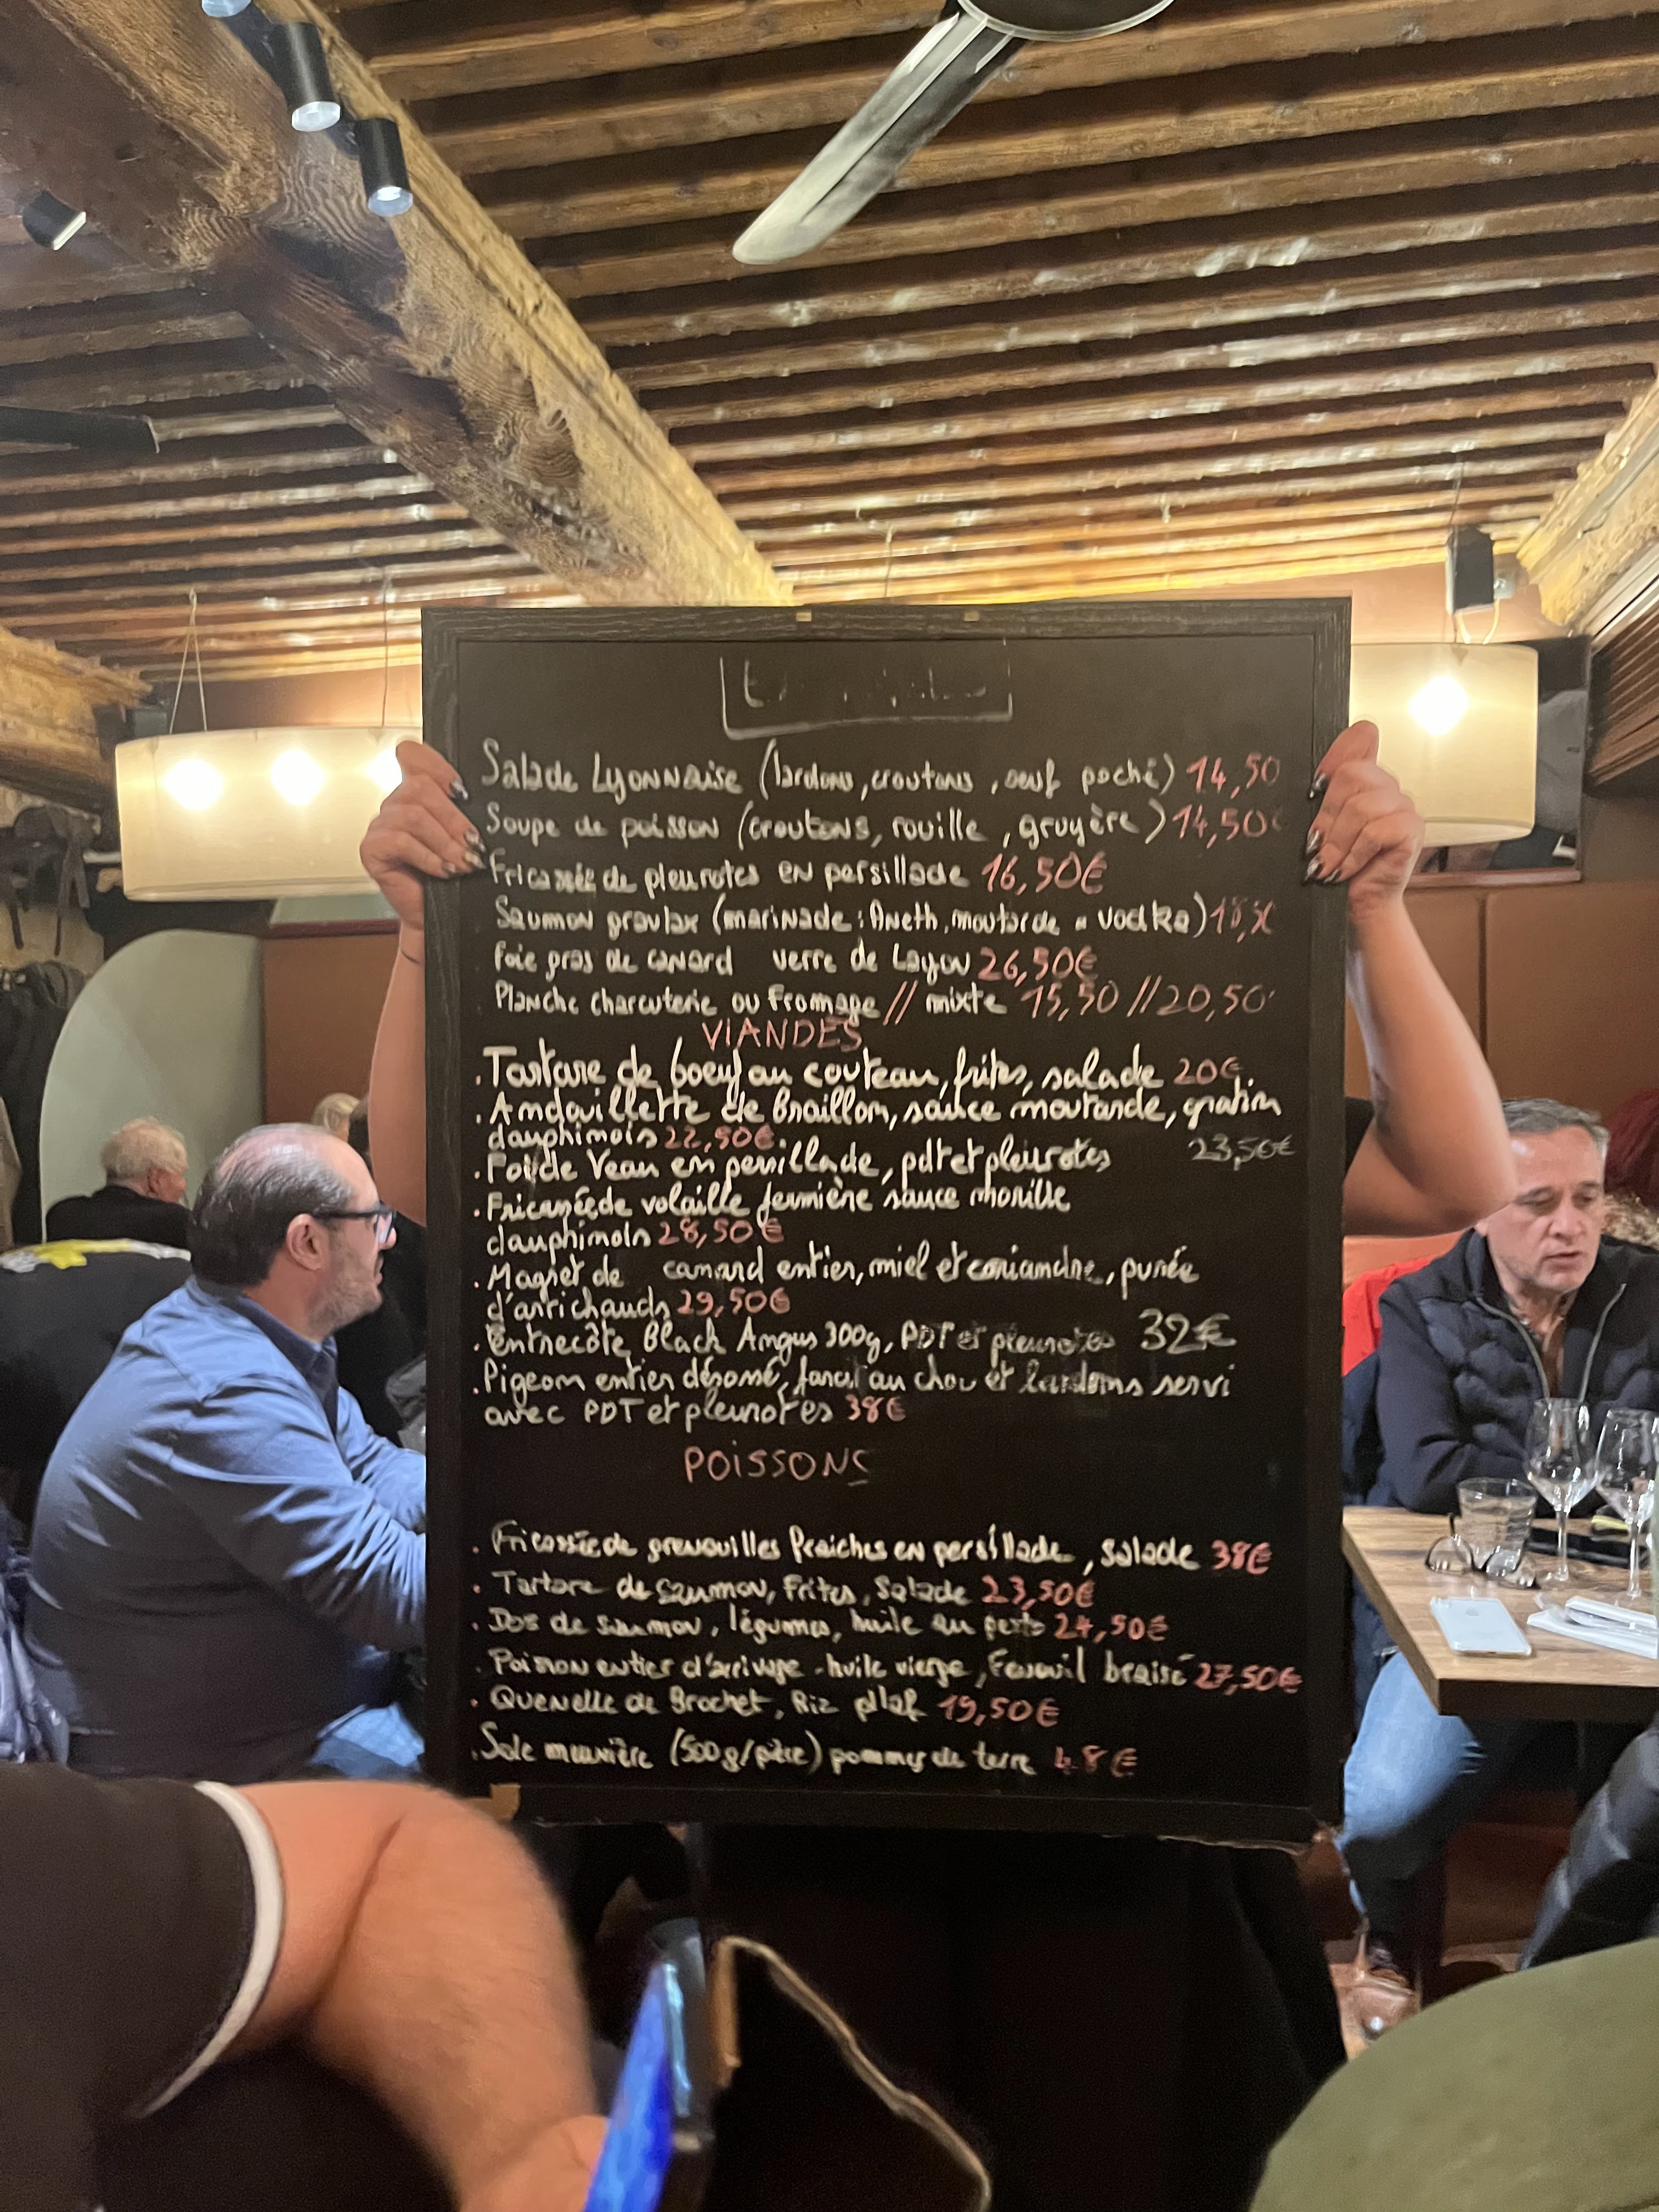 Salade Lyonnaise (lardons, croutons, oeuf poché) 14,50
Soupe de poisson (croutons, rouille, gruyère) 14,50€
Fricassée de pleurotes en persillade 16,50€
Saumon gravlax (marinade: Aneth, moutarde vodka)
Foie gras de canard verre de Layon 26,50€
Planche charcuterie ou Fromage // mixte 15,50 // 20,50
VIANDES
. Tartare de boeuf au couteau, frites, salade 20€
. Andouillette de Braillon, sauce moutarde, gratin
dauphinois 22,50€.
. Foie de Veau en persillade, pdt et pleurotes 23,50€
. Fricassée de volaille fermière sauce morille
dauphinois 28,50€
. Magret de canard entier, miel et coriandre, purée
d'artichauds 29,50€
. Entrecôte Black Angus 300g, PDT et pleurotes 32€
. Pigeon entier désossé, farci au chou et lardons servi
avec PDT et pleurotes 38€
POISSONS
. Fricassée de grenouilles Fraiches en persillade, salade 38€
. Tartare de Saumon, Frites, Salade 23,50€
. Dos de saumon, légumes, huile au pesto 24,50€
. Poisson entier d'arrivage - huile vierge, Fenouil braisé 27,50€
. Quenelle de Brochet, Riz pilaf 19,50€
. Sole meunière (500g/pièce) pommes de terre 48€